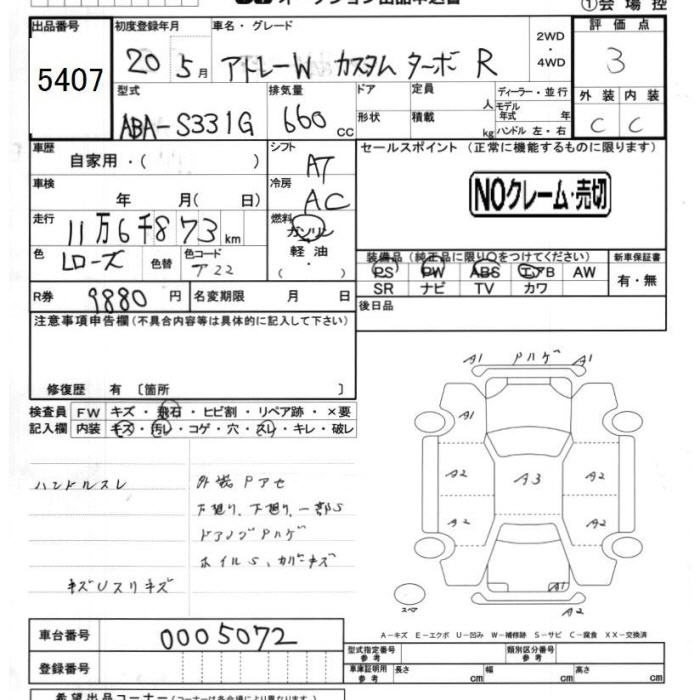 ①会場控
出品番号
5407
初度登録年月
20 5月
車名・グレード
アトレーW カスタム ターボ R
2WD
・
4WD
評価点
3
型式
ABA-S331G
排気量
660 cc
ドア
形状
定員
人
積載
kg
ディーラー・並行
モデル
年式 年
ハンドル 左・右
外装 内装
C C
車歴
自家用・( )
シフト
AT
セールスポイント (正常に機能するものに限ります)
NOクレーム・売切
車検
年 月( 日)
冷房
AC
走行
11万6千873km
燃料
ガソリン
軽油
・
( )
色
Lローズ
色替
色コード
R券
9880 円
名変期限 月 日
装備品 (純正品に限り○をつけてください)
PS PW ABS エアB AW
SR ナビ TV カワ
新車保証書
有・無
後日品
注意事項申告欄 (不具合内容等は具体的に記入して下さい)
修復歴 有 〔箇所 〕
検査員
記入欄
FW キズ・飛石・ヒビ割・リペア跡・×要
内装 キズ・汚レ・コゲ・穴・スレ・キレ・破レ
ハンドルスレ
外装 Pアセ
下廻り、一部S
ドアノブPハゲ
ホイルS、カバーキズ
キズUスリキズ
A1 Pハゲ A1
A1
A2 A3 A2
A2 A2
A1
スペア
A2
A-キズ E-エクボ U-凹み W-補修跡 S-サビ C-腐食 XX-交換済
車台番号
0005072
登録番号
型式指定番号
参考
類別区分番号
参考
車庫証明用
参考
長さ cm 幅 cm 高さ cm
希望出品コーナー (コーナーは各会場により異なります)